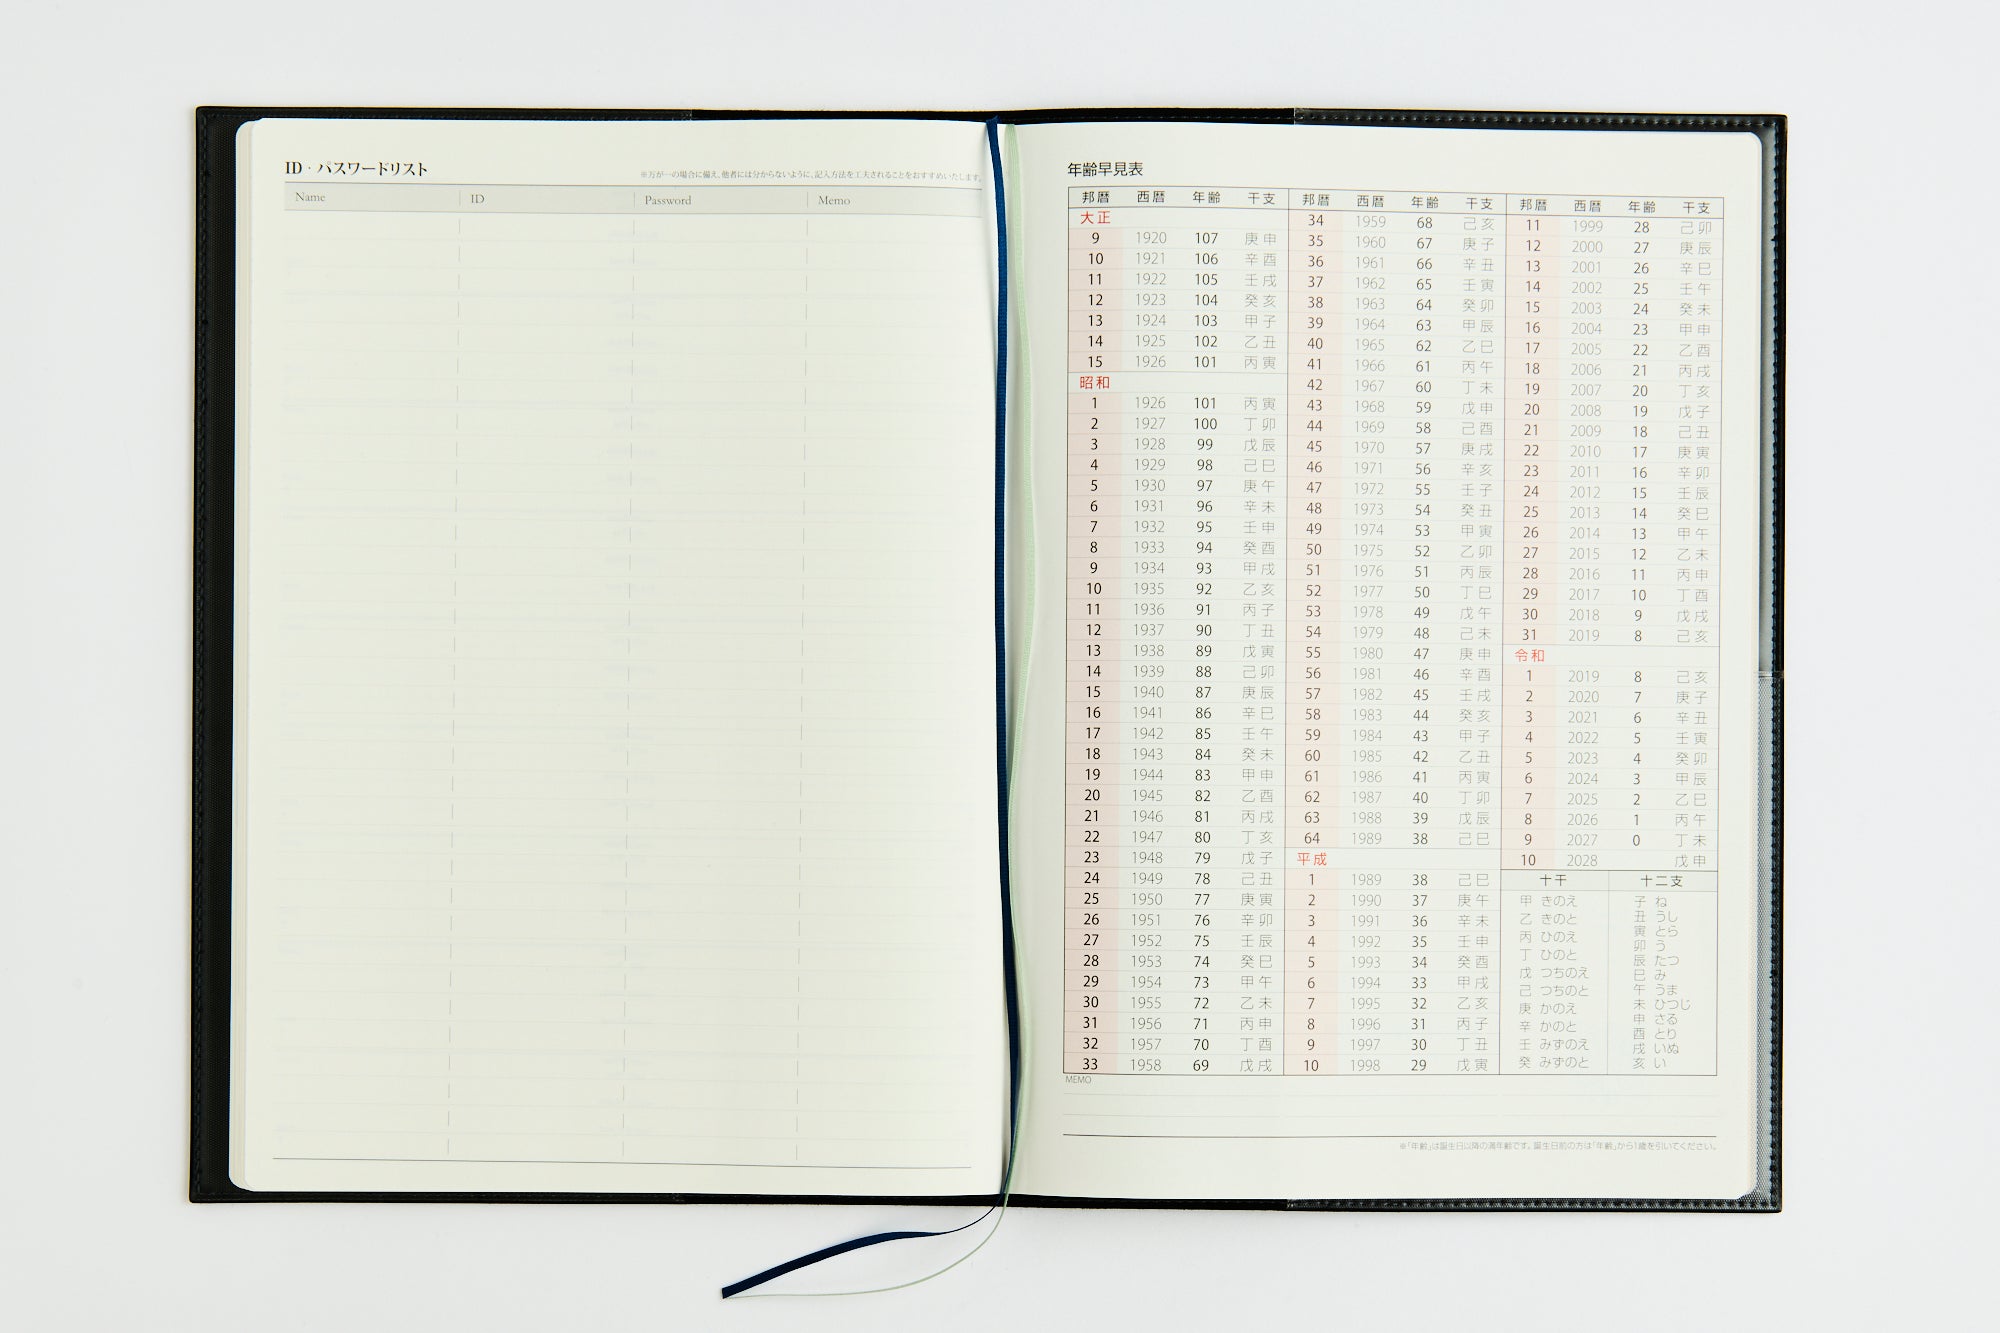 ID・パスワードリスト
※万が一の場合に備え、他者には分からないように、記入方法を工夫されることをおすすめいたします。
Name ID Password Memo
年齢早見表
邦暦 西暦 年齢 干支
大正
9 1920 107 庚申
10 1921 106 辛酉
11 1922 105 壬戌
12 1923 104 癸亥
13 1924 103 甲子
14 1925 102 乙丑
15 1926 101 丙寅
昭和
1 1926 101 丙寅
2 1927 100 丁卯
3 1928 99 戊辰
4 1929 98 己巳
5 1930 97 庚午
6 1931 96 辛未
7 1932 95 壬申
8 1933 94 癸酉
9 1934 93 甲戌
10 1935 92 乙亥
11 1936 91 丙子
12 1937 90 丁丑
13 1938 89 戊寅
14 1939 88 己卯
15 1940 87 庚辰
16 1941 86 辛巳
17 1942 85 壬午
18 1943 84 癸未
19 1944 83 甲申
20 1945 82 乙酉
21 1946 81 丙戌
22 1947 80 丁亥
23 1948 79 戊子
24 1949 78 己丑
25 1950 77 庚寅
26 1951 76 辛卯
27 1952 75 壬辰
28 1953 74 癸巳
29 1954 73 甲午
30 1955 72 乙未
31 1956 71 丙申
32 1957 70 丁酉
33 1958 69 戊戌
邦暦 西暦 年齢 干支
34 1959 68 己亥
35 1960 67 庚子
36 1961 66 辛丑
37 1962 65 壬寅
38 1963 64 癸卯
39 1964 63 甲辰
40 1965 62 乙巳
41 1966 61 丙午
42 1967 60 丁未
43 1968 59 戊申
44 1969 58 己酉
45 1970 57 庚戌
46 1971 56 辛亥
47 1972 55 壬子
48 1973 54 癸丑
49 1974 53 甲寅
50 1975 52 乙卯
51 1976 51 丙辰
52 1977 50 丁巳
53 1978 49 戊午
54 1979 48 己未
55 1980 47 庚申
56 1981 46 辛酉
57 1982 45 壬戌
58 1983 44 癸亥
59 1984 43 甲子
60 1985 42 乙丑
61 1986 41 丙寅
62 1987 40 丁卯
63 1988 39 戊辰
64 1989 38 己巳
平成
1 1989 38 己巳
2 1990 37 庚午
3 1991 36 辛未
4 1992 35 壬申
5 1993 34 癸酉
6 1994 33 甲戌
7 1995 32 乙亥
8 1996 31 丙子
9 1997 30 丁丑
10 1998 29 戊寅
邦暦 西暦 年齢 干支
11 1999 28 己卯
12 2000 27 庚辰
13 2001 26 辛巳
14 2002 25 壬午
15 2003 24 癸未
16 2004 23 甲申
17 2005 22 乙酉
18 2006 21 丙戌
19 2007 20 丁亥
20 2008 19 戊子
21 2009 18 己丑
22 2010 17 庚寅
23 2011 16 辛卯
24 2012 15 壬辰
25 2013 14 癸巳
26 2014 13 甲午
27 2015 12 乙未
28 2016 11 丙申
29 2017 10 丁酉
30 2018 9 戊戌
31 2019 8 己亥
令和
1 2019 8 己亥
2 2020 7 庚子
3 2021 6 辛丑
4 2022 5 壬寅
5 2023 4 癸卯
6 2024 3 甲辰
7 2025 2 乙巳
8 2026 1 丙午
9 2027 0 丁未
10 2028 戊申
十干
甲 きのえ
乙 きのと
丙 ひのえ
丁 ひのと
戊 つちのえ
己 つちのと
庚 かのえ
辛 かのと
壬 みずのえ
癸 みずのと
十二支
子 ね
丑 うし
寅 とら
卯 う
辰 たつ
巳 み
午 うま
未 ひつじ
申 さる
酉 とり
戌 いぬ
亥 い
MEMO
※「年齢」は誕生日以降の満年齢です。誕生日前の方は「年齢」から1歳を引いてください。